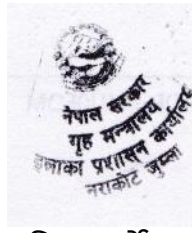 नेपाल सरकार
गृह मन्त्रालय
इलाका प्रशासन कार्यालय
नराकोट जुम्ला